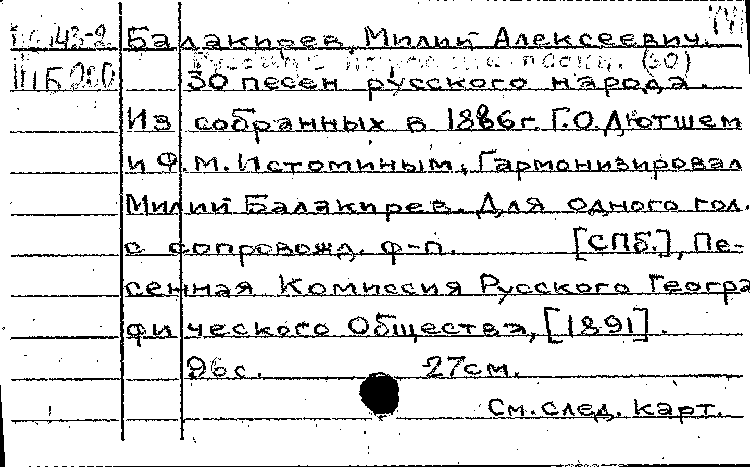 Балакирев, Милий Алексеевич.
(30)
30 песен русского народа.
Из собранных в 1886г. Г.О.Дютшем
и Ф.М.Истоминым, Гармонизировал
Милий Балакирев. Для одного гол.
с сопровожд. ф-п. [СПБ.], Пе-
сенная Комиссия Русского Геогра
фического Общества, [1891].
96с. 27см.
См. след. карт.